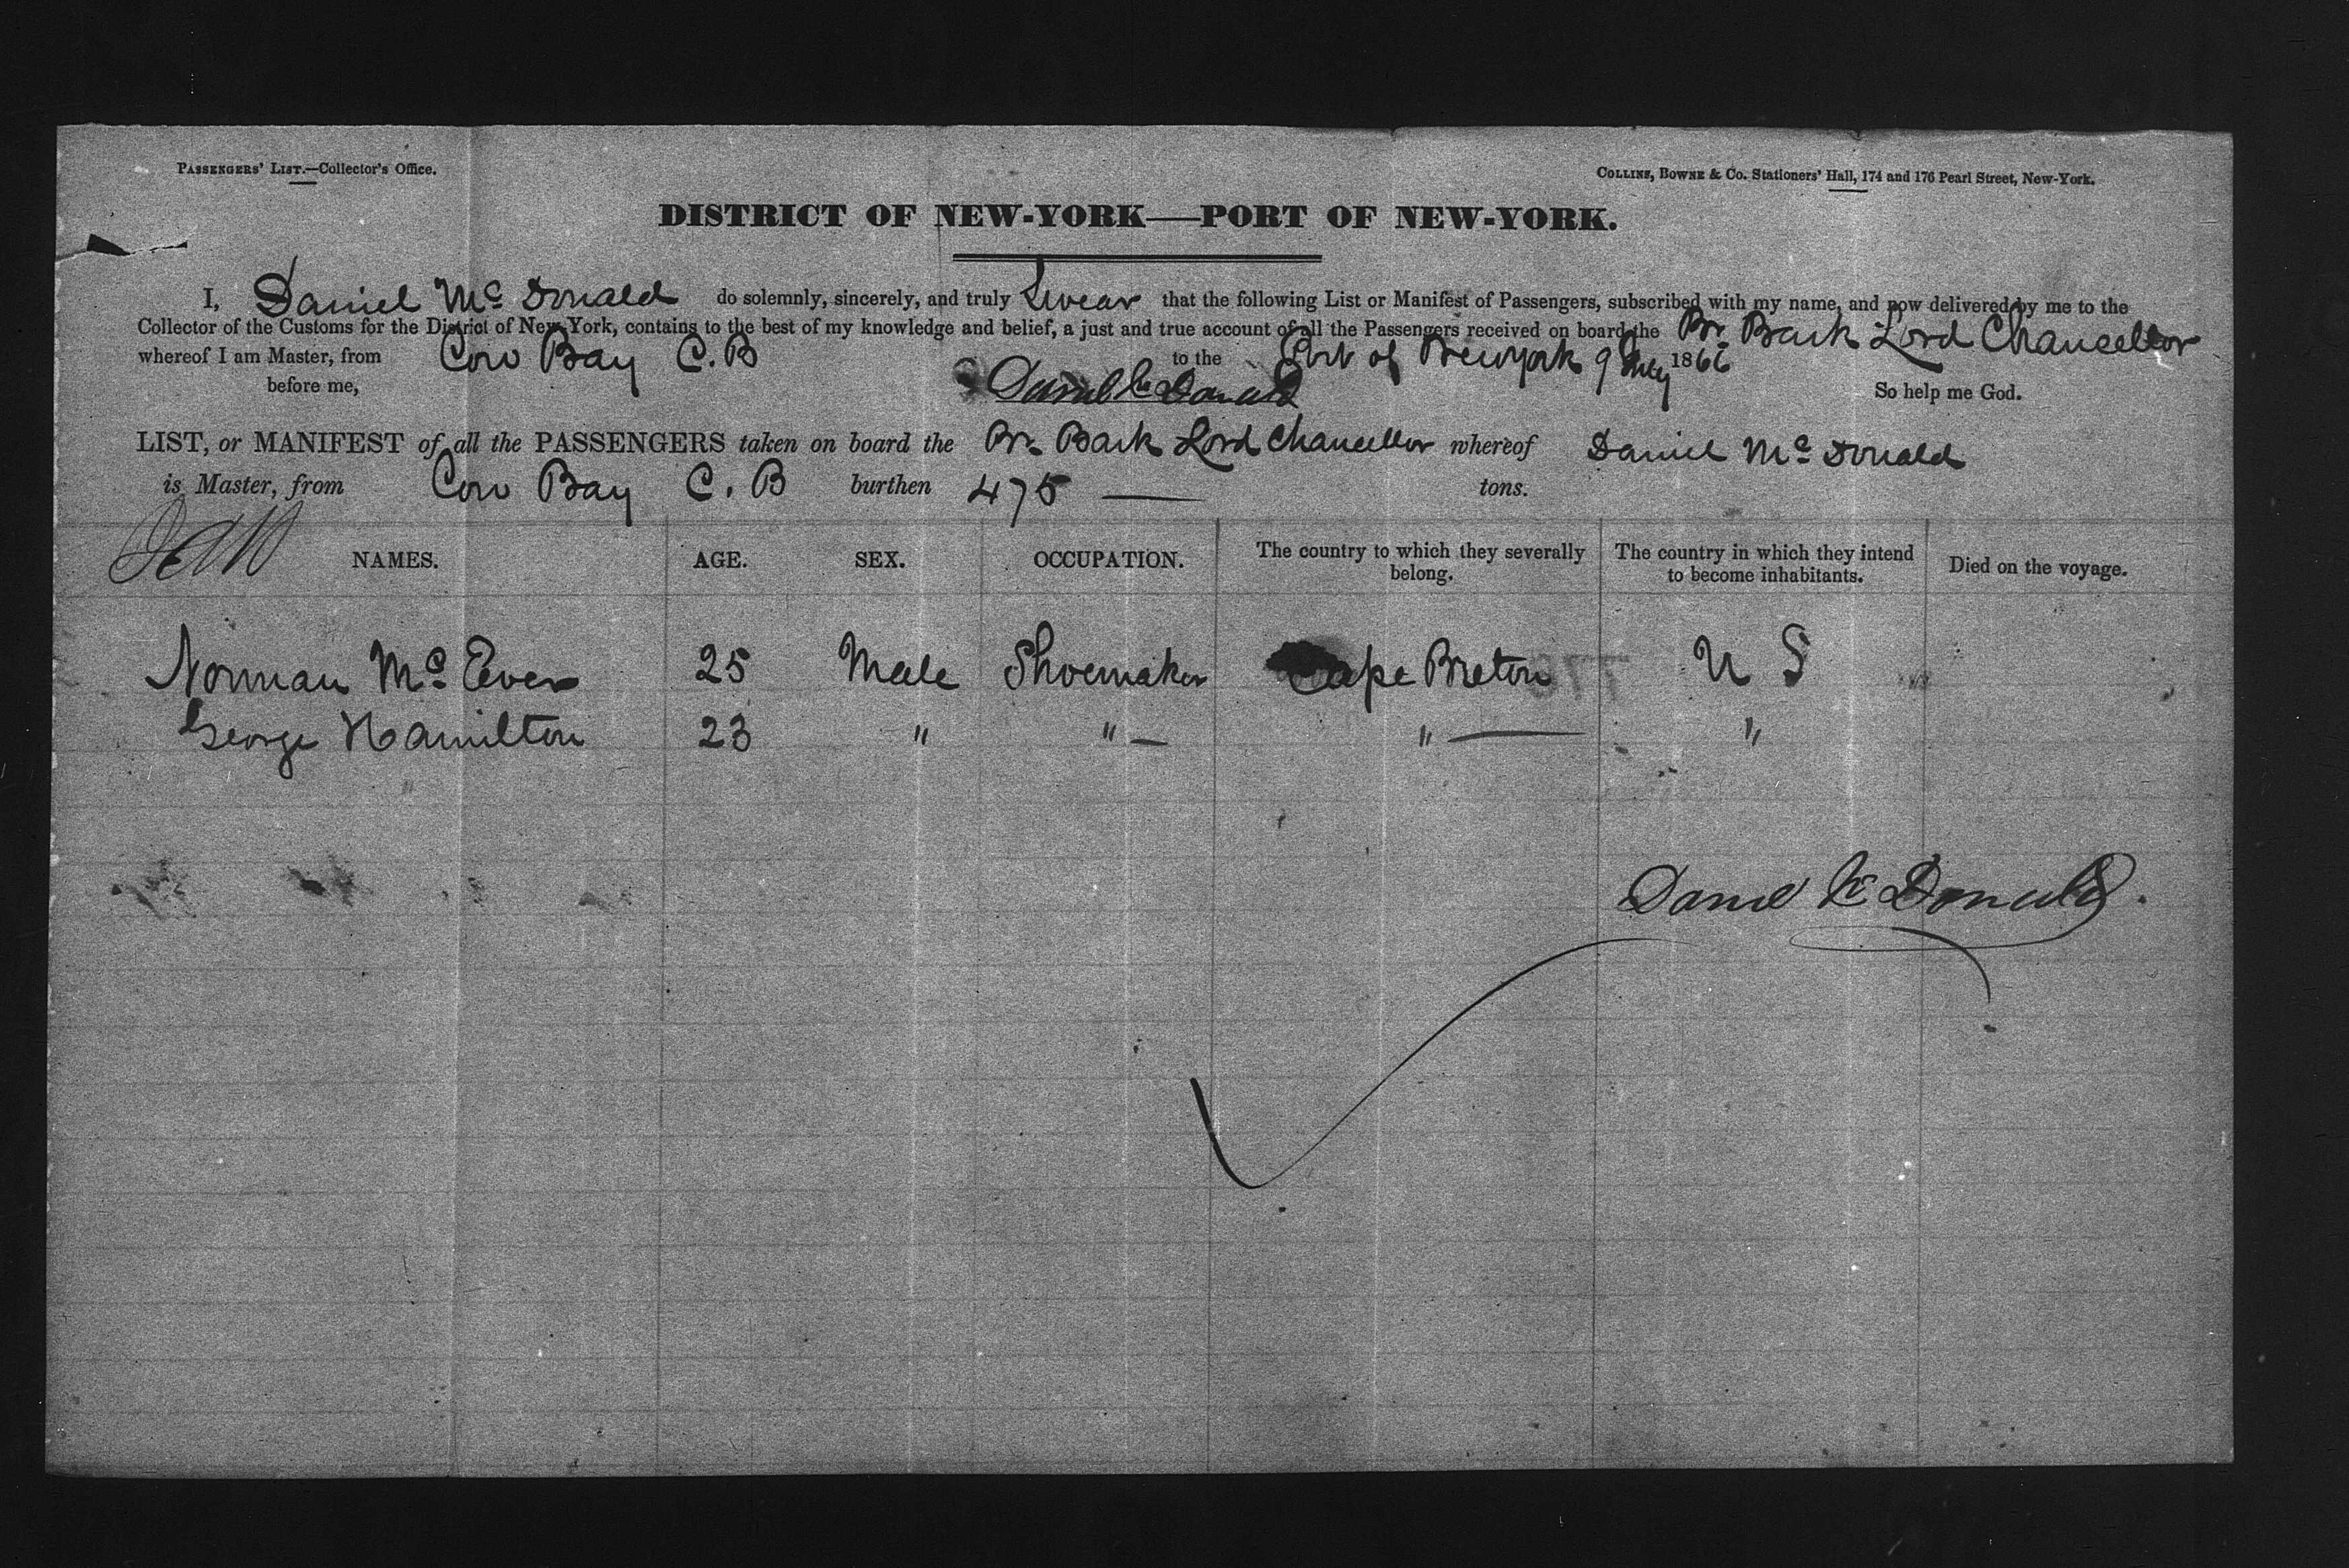 PASSENGERS' LIST.—Collector's Office.
COLLINS, BOWNE & Co. Stationers' Hall, 174 and 176 Pearl Street, New-York.
DISTRICT OF NEW-YORK—PORT OF NEW-YORK.
I, Daniel Mc Donald do solemnly, sincerely, and truly Swear that the following List or Manifest of Passengers, subscribed with my name, and now delivered by me to the
Collector of the Customs for the District of New York, contains to the best of my knowledge and belief, a just and true account of all the Passengers received on board the Br. Bark Lord Chancellor
whereof I am Master, from Cow Bay C. B to the Port of Newyork 9 1866
before me, Daniel Mc Donald So help me God.
LIST, or MANIFEST of all the PASSENGERS taken on board the Br. Bark Lord Chancellor whereof Daniel Mc Donald
is Master, from Cow Bay C. B burthen 475 — tons.
NAMES. AGE. SEX. OCCUPATION. The country to which they severally belong. The country in which they intend to become inhabitants. Died on the voyage.
Norman Mc Even 25 Male Shoemaker Cape Breton U S
George Hamilton 23 " " — " — "
Daniel Mc Donald.